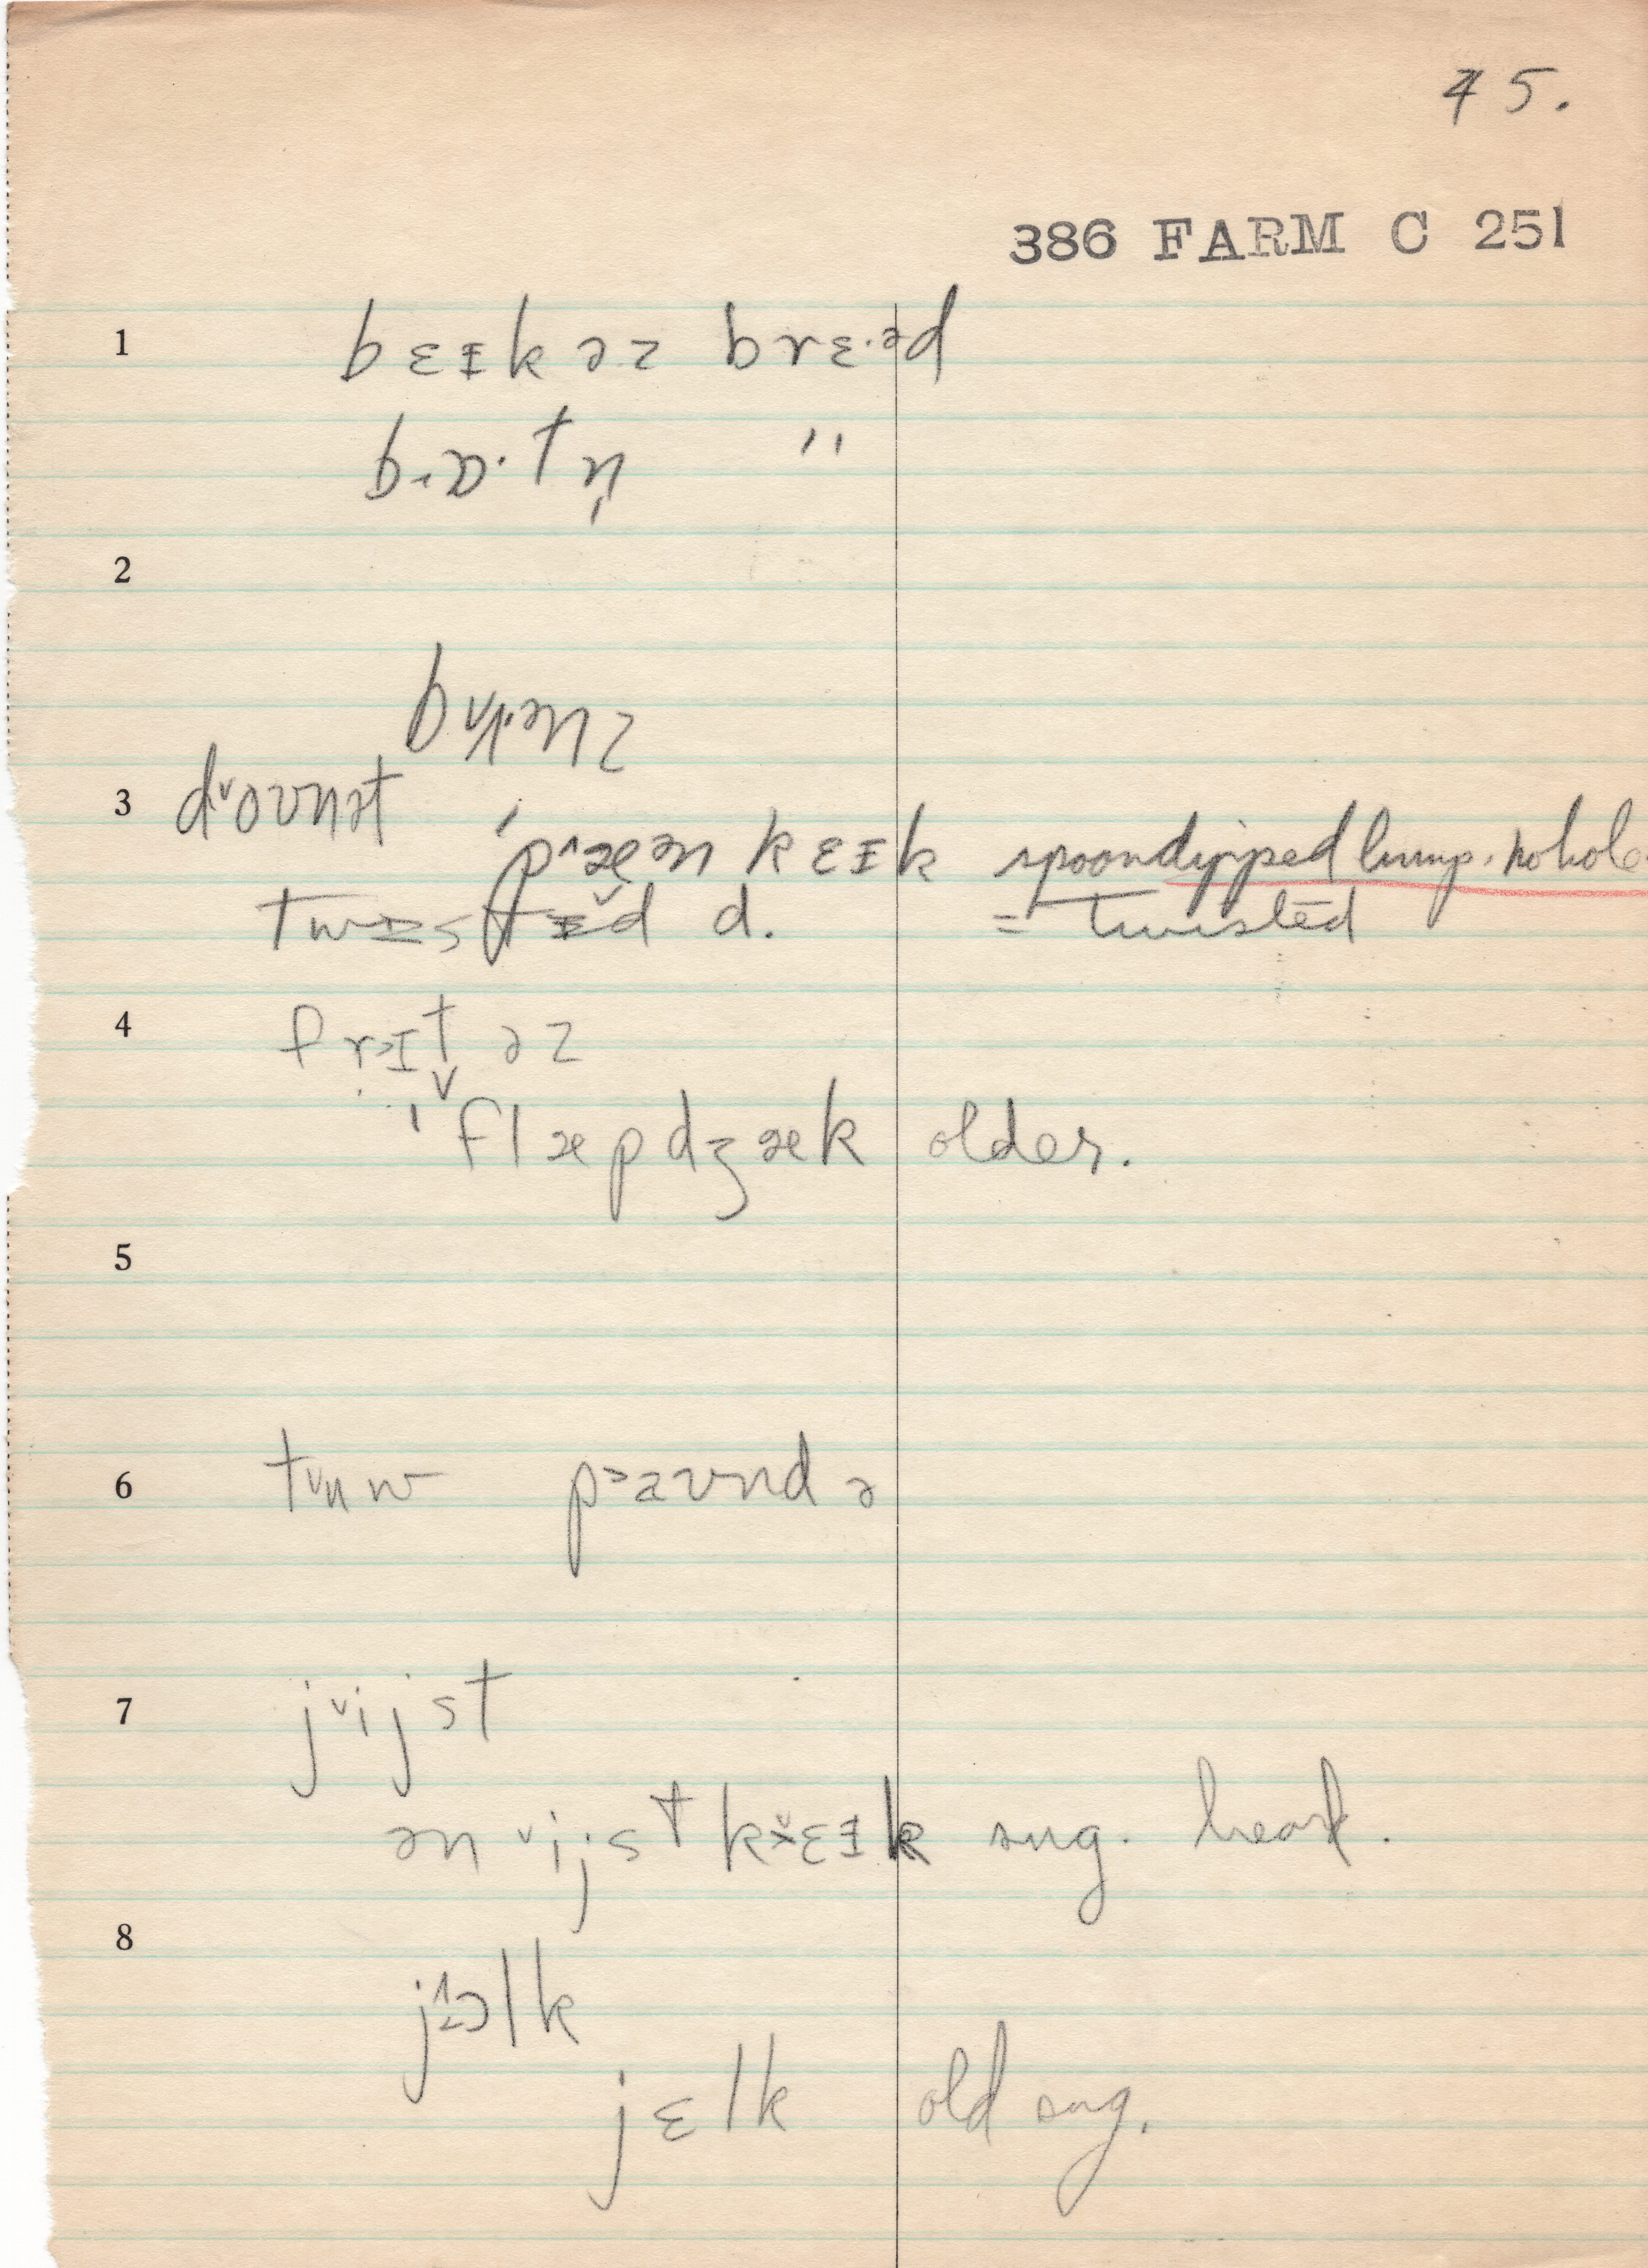 45.
386 FARM C 251
1 bɛɪkəz brɛ·əd
b·ɒ·tn̩ "
2
bʌnz
3 dˇoʊnət
ˈpˆæən kɛɪk spoondipped lump. no hole
twɪstɪ̌d d. = twisted
4 fr>ɪtəz
ˈflæpdʒæk older.
5
6 tᵛuw p>aʊnd ə
7 jˇijst
ən ˇijst kˇɛɪk sug. heard.
8 jɔlk
jɛlk old sug.